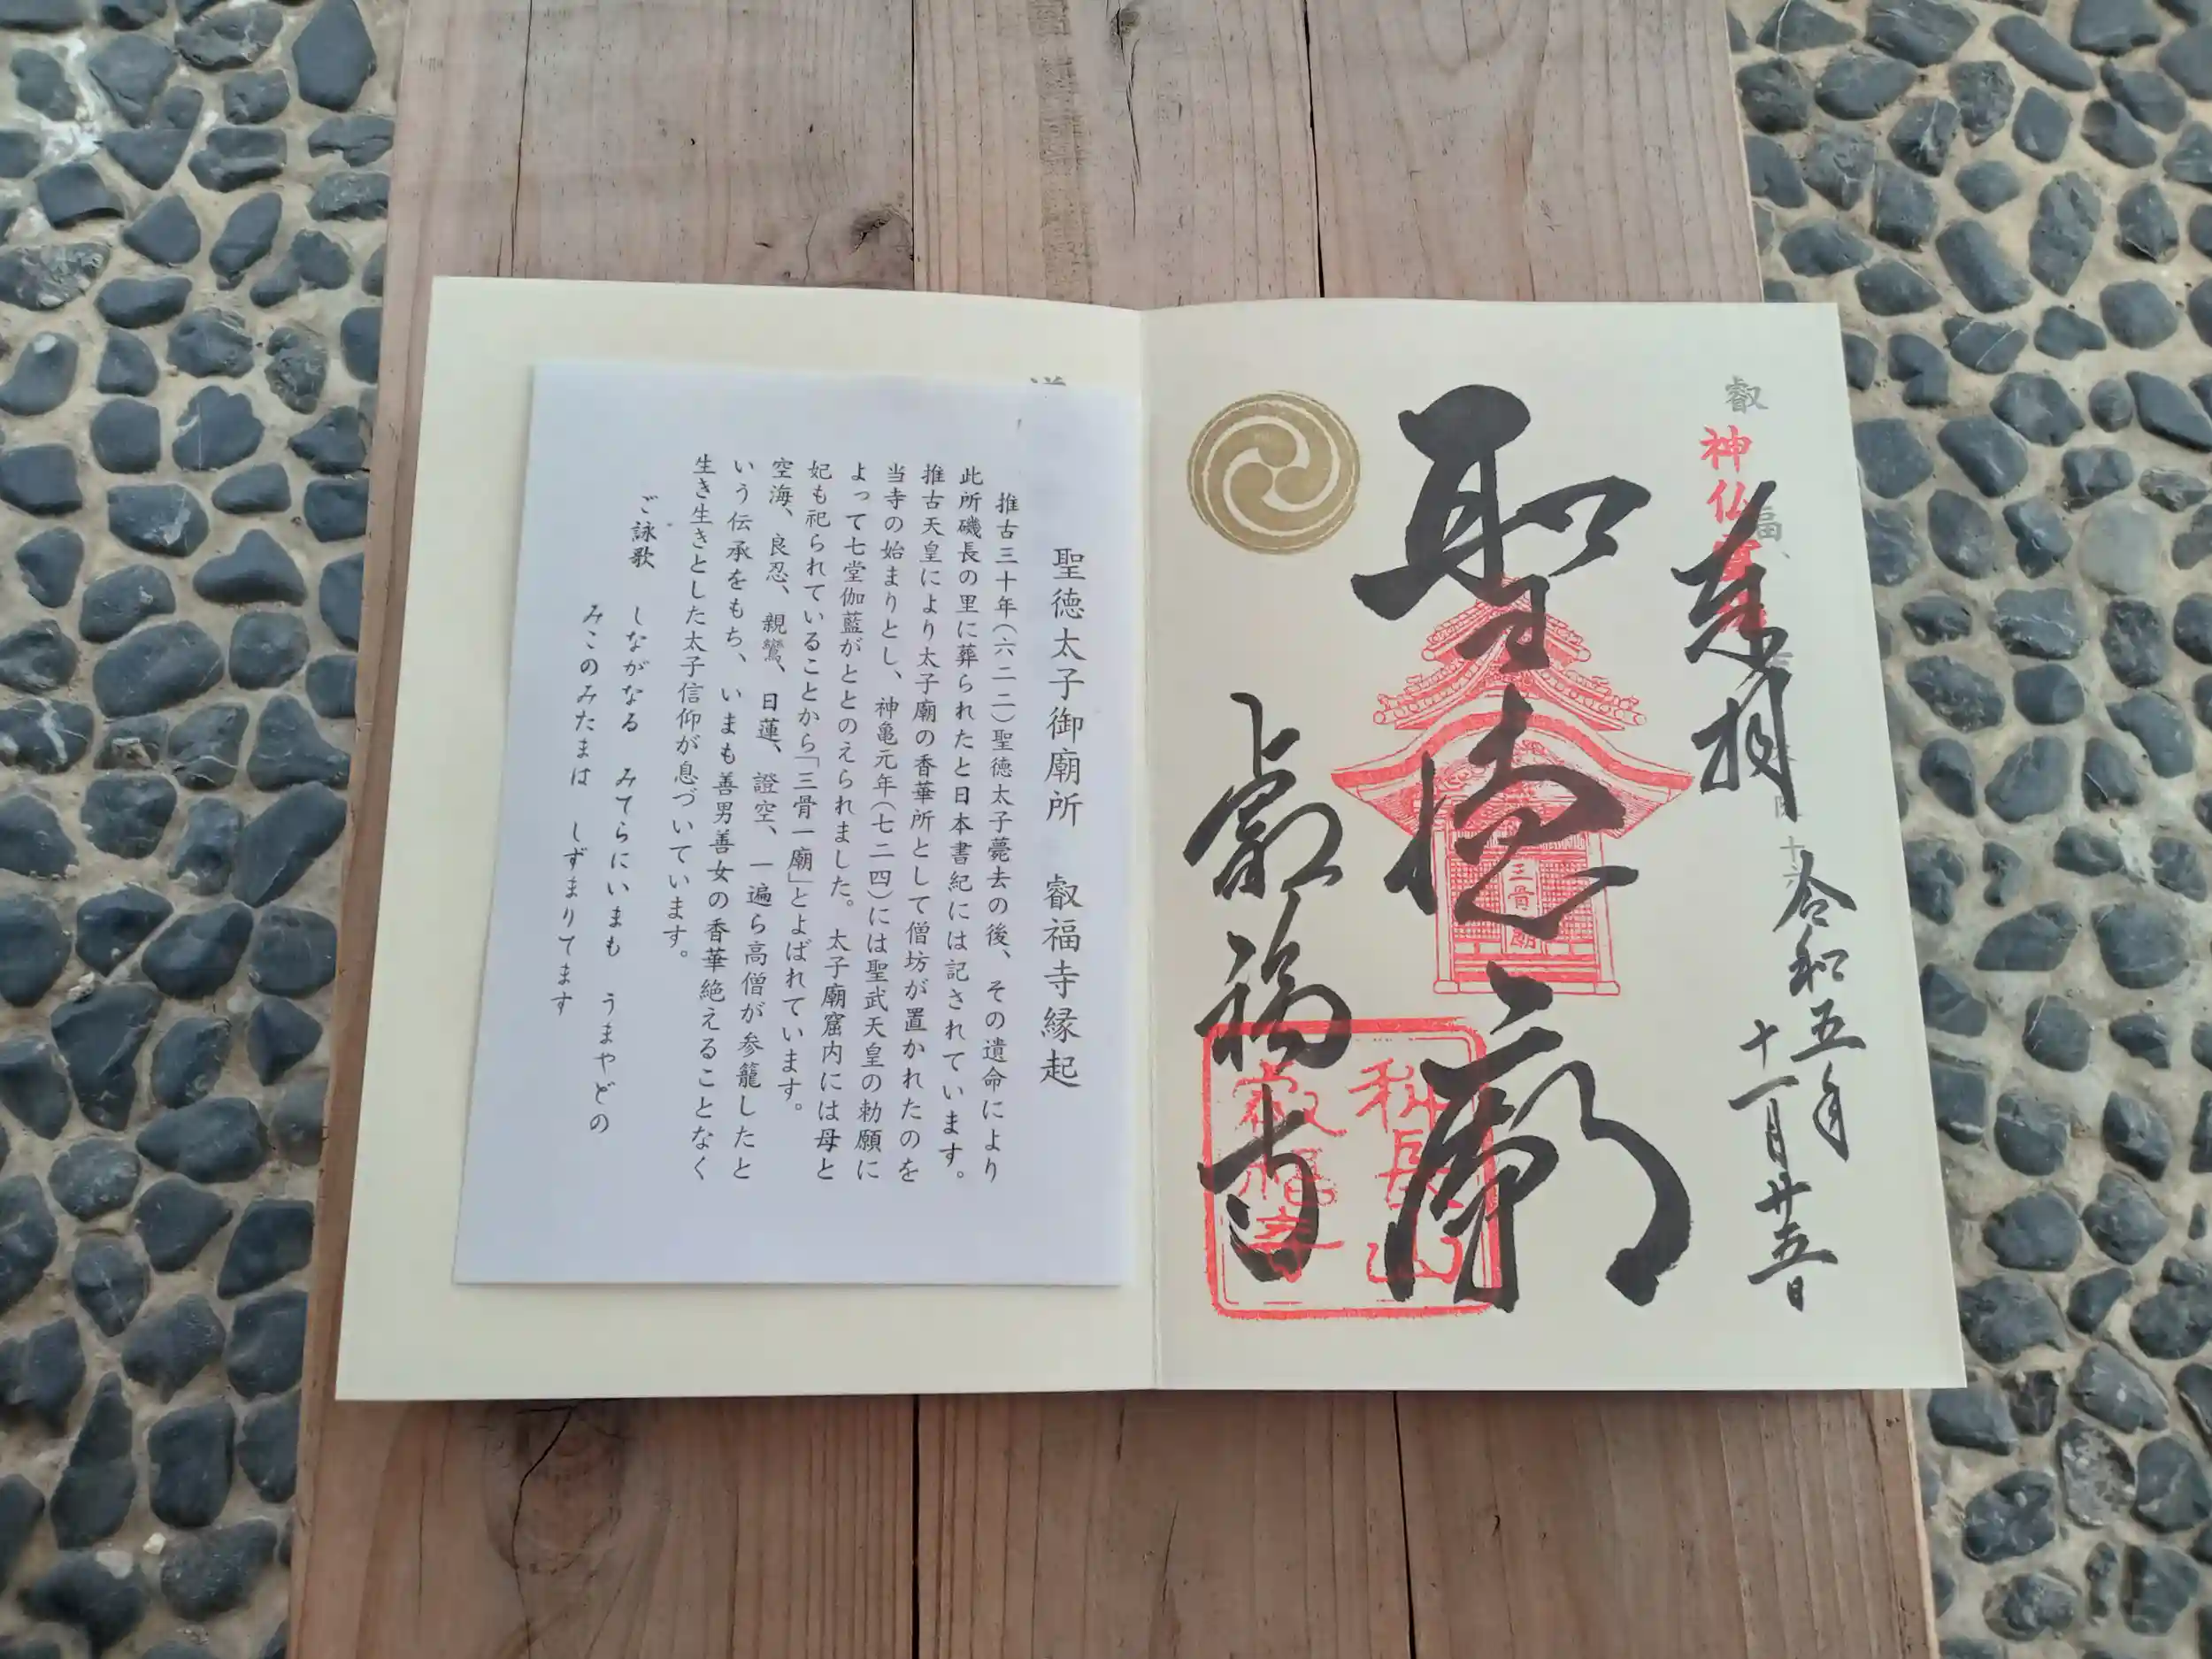 奉拝
令和五年
十一月廿五日
聖徳廟
叡福寺
叡
福
神仏
三骨一廟
科長山
叡福寺
聖徳太子御廟所　叡福寺縁起
推古三十年(六二二)聖徳太子薨去の後、その遺命により
此所磯長の里に葬られたと日本書紀には記されています。
推古天皇により太子廟の香華所として僧坊が置かれたのを
当寺の始まりとし、神亀元年(七二四)には聖武天皇の勅願に
よって七堂伽藍がととのえられました。太子廟窟内には母と
妃も祀られていることから「三骨一廟」とよばれています。
空海、良忍、親鸞、日蓮、證空、一遍ら高僧が参籠したと
いう伝承をもち、いまも善男善女の香華絶えることなく
生き生きとした太子信仰が息づいています。
ご詠歌　しながなる　みてらにいまも　うまやどの
みこのみたまは　しずまりてます